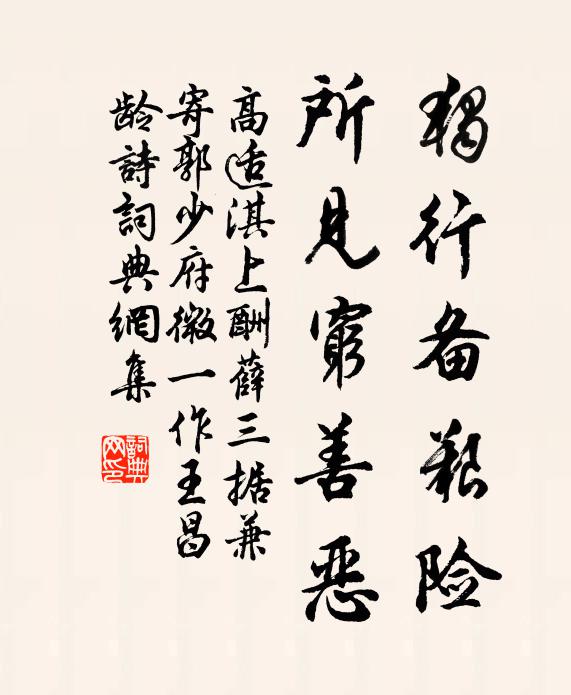 獨行备艱险
所見窮善惡
高适淇上酬薛三据兼
寄郭少府微一作王昌
龄詩詞典網集
詞典网印